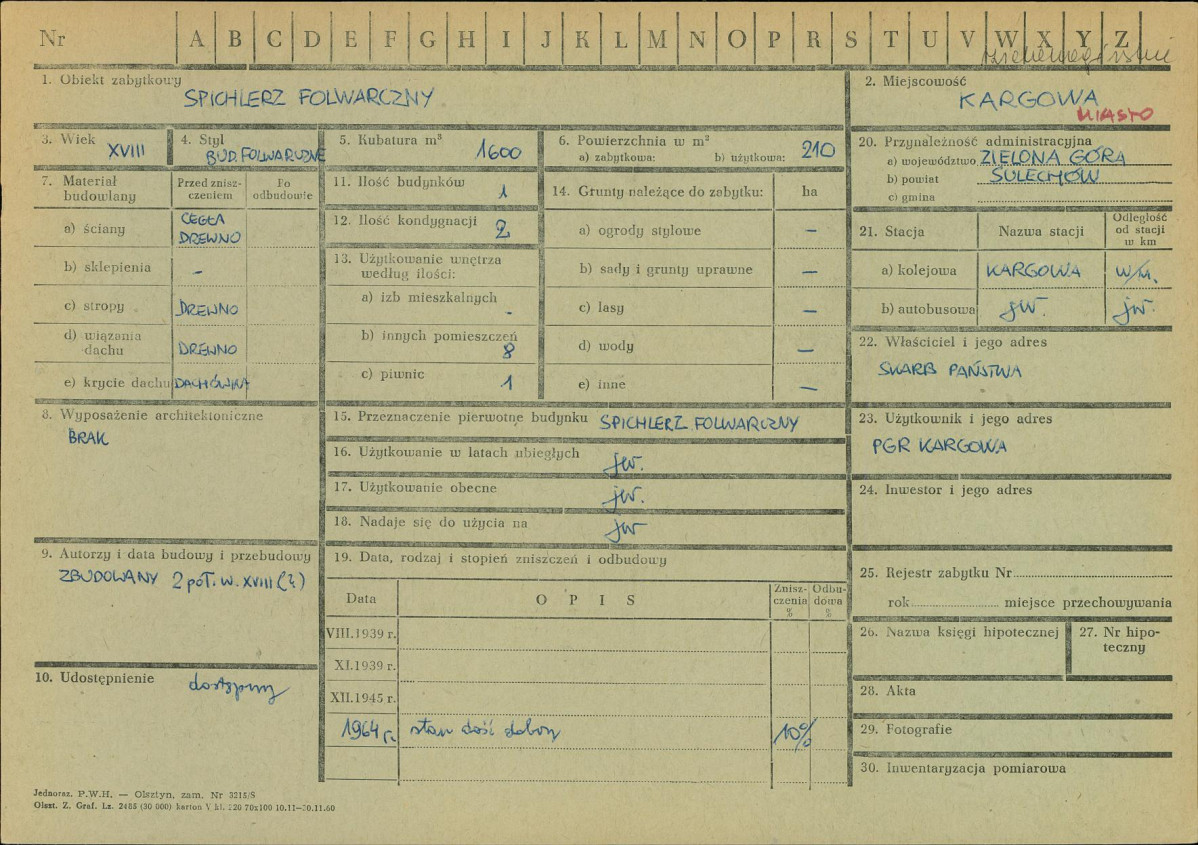 Nr A B C D E F G H I J K L M N O P R S T U V W X Y Z
1. Obiekt zabytkowy
SPICHLERZ FOLWARCZNY
2. Miejscowość
KARGOWA
MIASTO
3. Wiek XVIII
4. Styl
BUD. FOLWARCZNE
5. Kubatura m³
1600
6. Powierzchnia w m²
a) zabytkowa: b) użytkowa: 210
20. Przynależność administracyjna
a) województwo ZIELONA GÓRA
b) powiat SULECHÓW
c) gmina
7. Materiał budowlany
Przed znisz-
czeniem
Po
odbudowie
a) ściany
CEGŁA
DREWNO
b) sklepienia –
c) stropy DREWNO
d) wiązania
dachu DREWNO
e) krycie dachu DACHÓWKA
11. Ilość budynków 1
12. Ilość kondygnacji 2
13. Użytkowanie wnętrza
według ilości:
a) izb mieszkalnych -
b) innych pomieszczeń
8
c) piwnic 1
14. Grunty należące do zabytku: ha
a) ogrody stylowe –
b) sady i grunty uprawne –
c) lasy –
d) wody –
e) inne –
21. Stacja Nazwa stacji
Odległość
od stacji
w km
a) kolejowa KARGOWA w/m.
b) autobusowa jw. jw.
22. Właściciel i jego adres
SKARB PAŃSTWA
8. Wyposażenie architektoniczne
BRAK
15. Przeznaczenie pierwotne budynku SPICHLERZ FOLWARCZNY
16. Użytkowanie w latach ubiegłych jw.
17. Użytkowanie obecne jw.
18. Nadaje się do użycia na jw
23. Użytkownik i jego adres
PGR KARGOWA
24. Inwestor i jego adres
9. Autorzy i data budowy i przebudowy
ZBUDOWANY 2 poł. w. XVIII (?)
19. Data, rodzaj i stopień zniszczeń i odbudowy
Data OPIS
Znisz-
czenia
%
Odbu-
dowa
%
VIII.1939 r.
XI.1939 r.
XII.1945 r.
1964 r. stan dość dobry 10%
10. Udostępnienie dostępny
25. Rejestr zabytku Nr
rok miejsce przechowywania
26. Nazwa księgi hipotecznej
27. Nr hipo-
teczny
28. Akta
29. Fotografie
30. Inwentaryzacja pomiarowa
Jednoraz. P.W.H. — Olsztyn, zam. Nr 3215/S
Olszt. Z. Graf. Lz. 2486 (30 000) karton V kl. 220 70x100 10.11—20.11.60